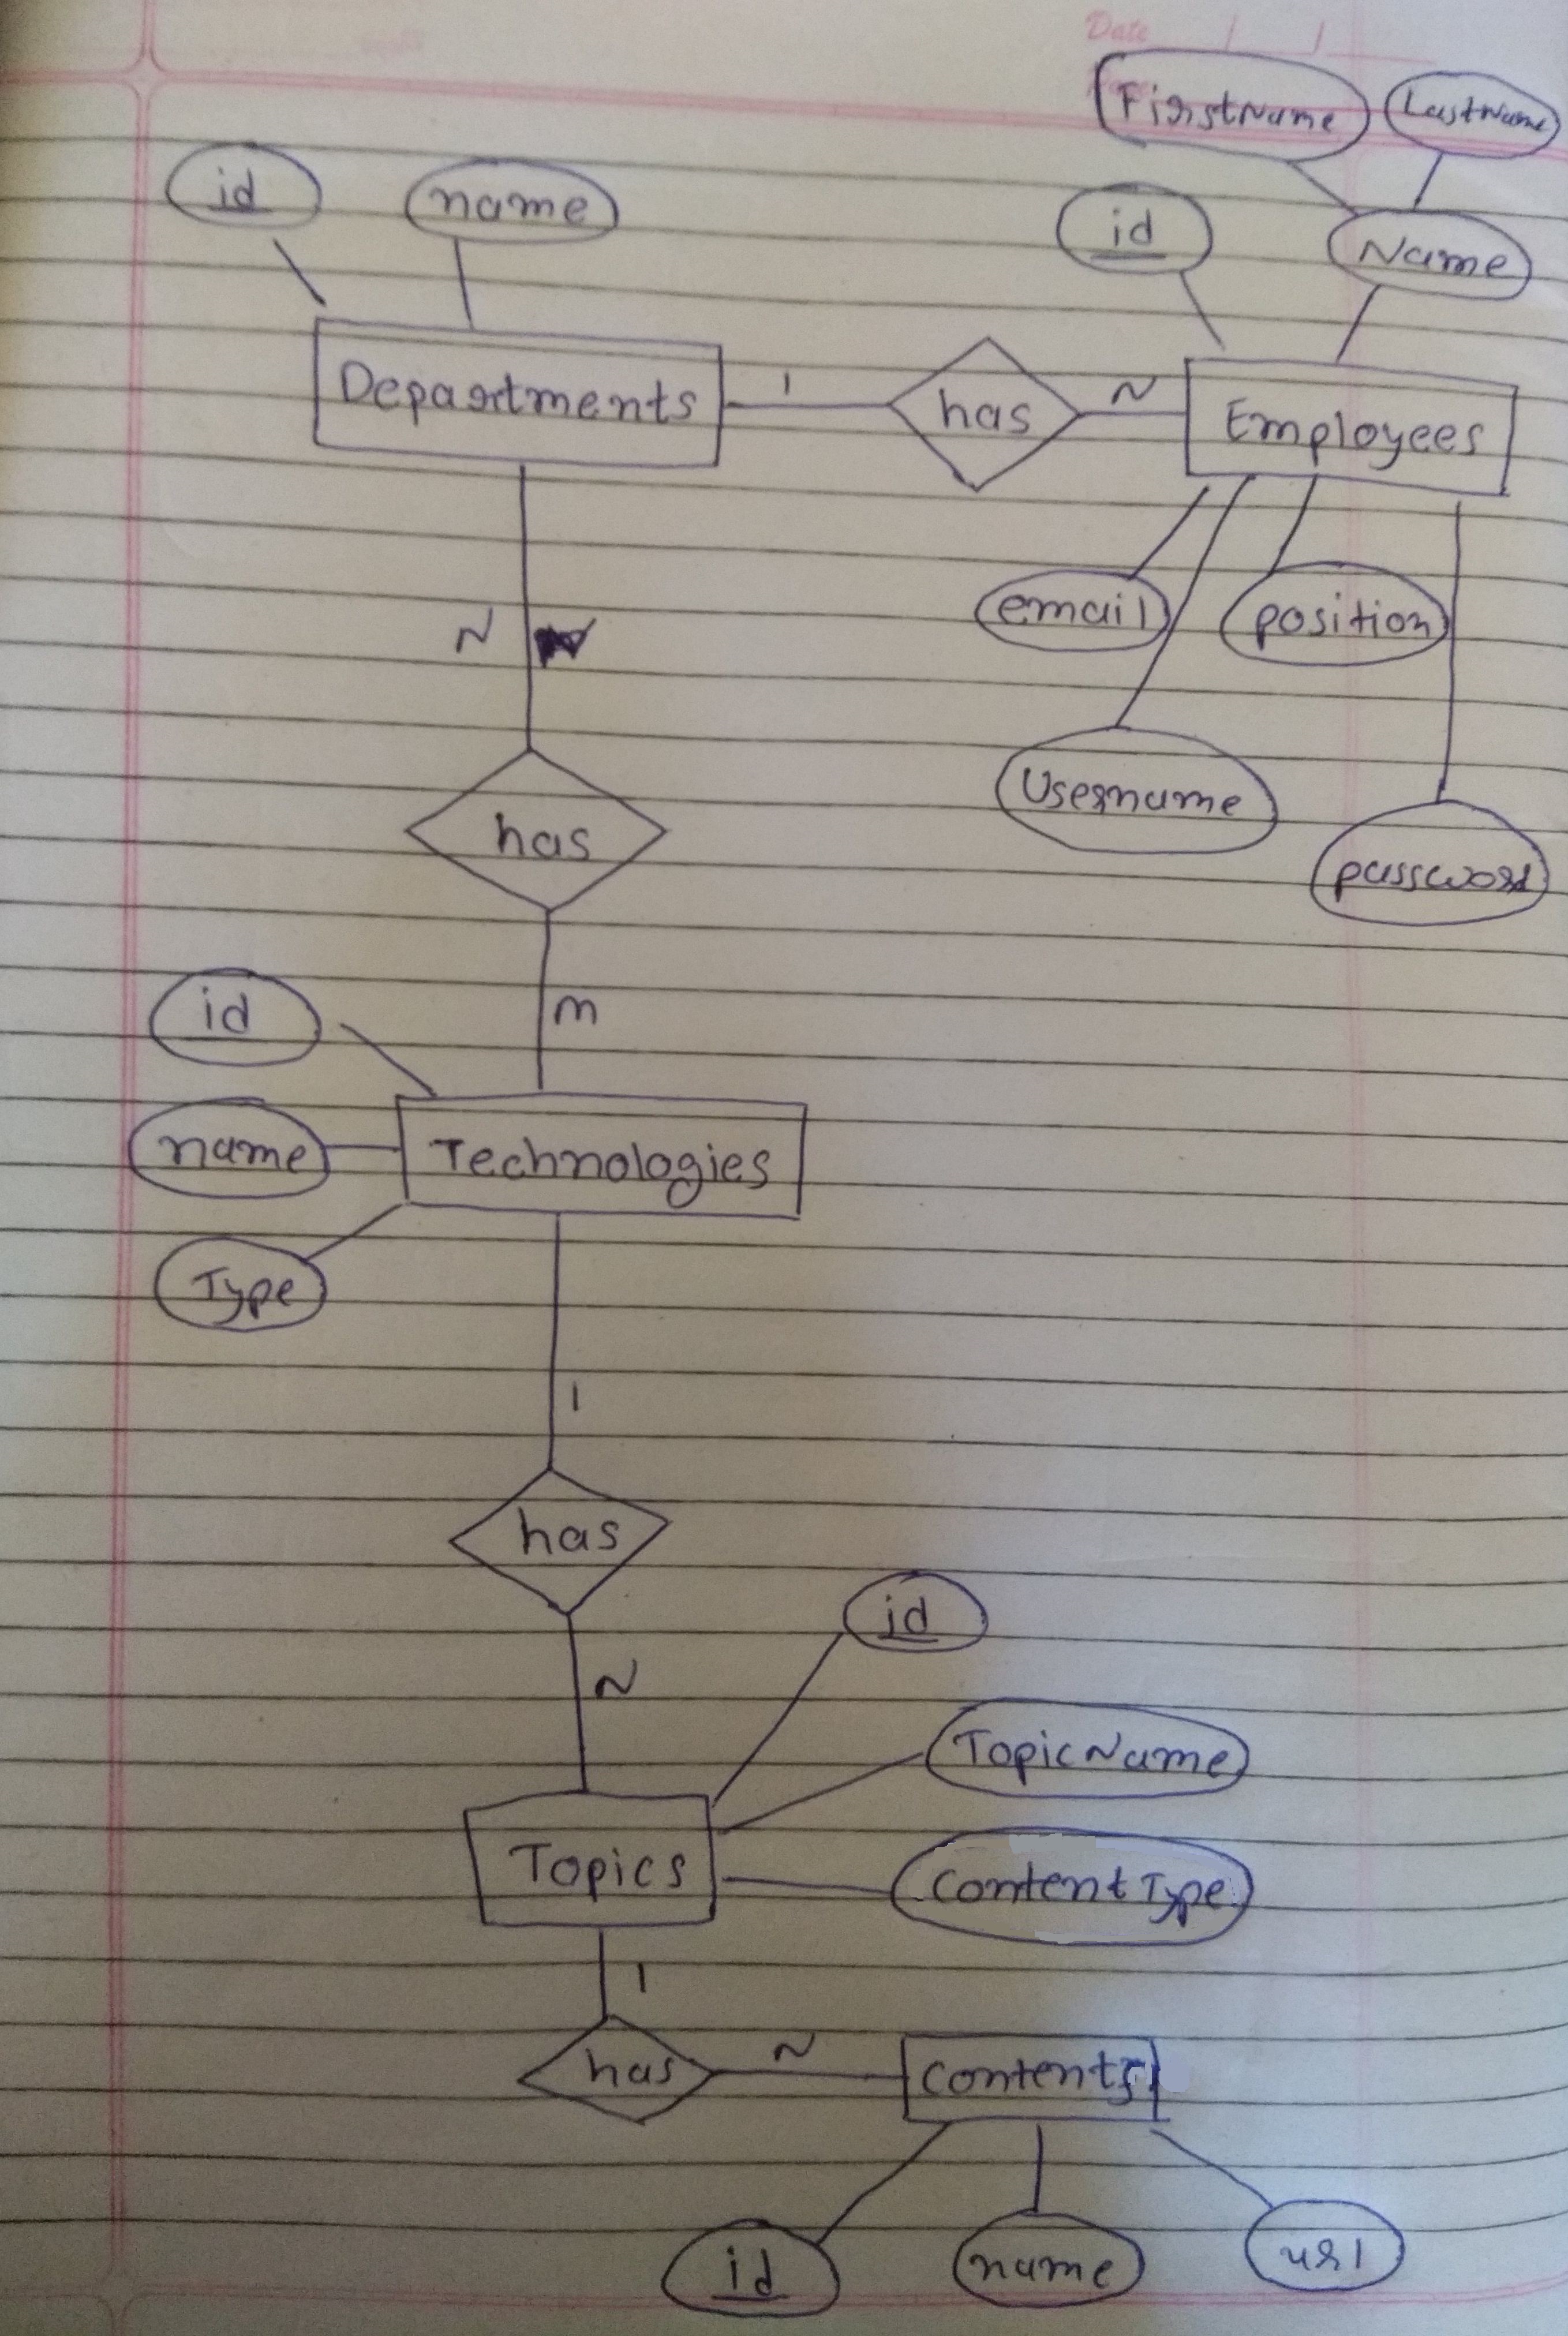 Date / /
FirstName LastName
id name id Name
Departments 1 has N Employees
N
email position
Username
has password
id m
name Technologies
Type
1
has
id
N
TopicName
Topics ContentType
1
has N Contents
id name url